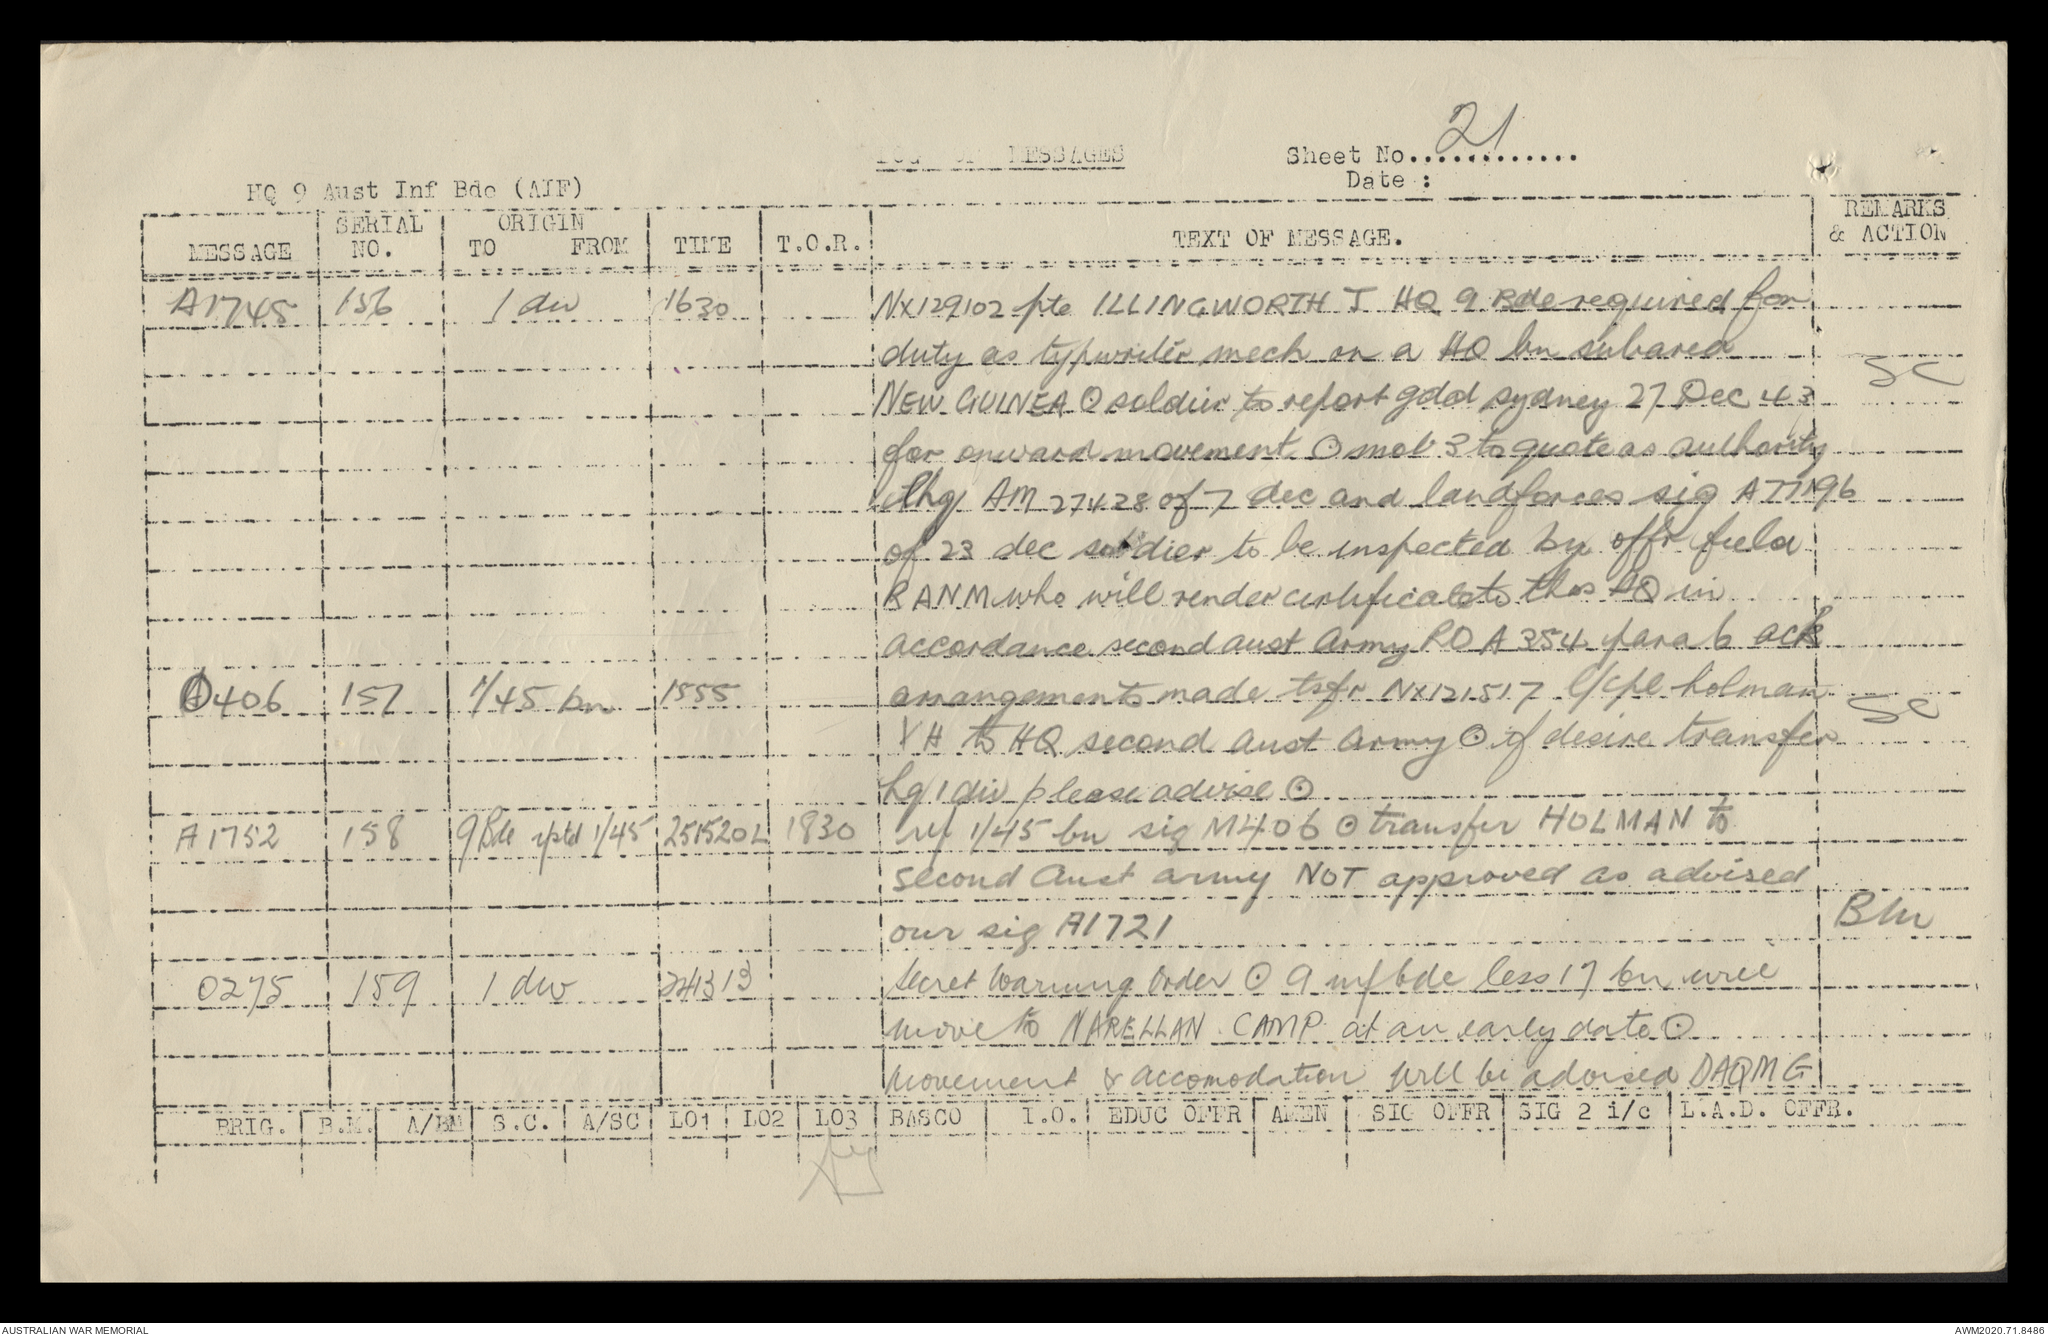 LOG OF MESSAGES
Sheet No. 21
Date :
HQ 9 Aust Inf Bde (AIF)
MESSAGE | SERIAL NO. | ORIGIN TO FROM | TIME | T.O.R. | TEXT OF MESSAGE. | REMARKS & ACTION
A1745 156 1 div 1630 NX129102 pte ILLINGWORTH J HQ 9 Bde required for
duty as typwriter mech on a HQ bn subarea SC
NEW GUINEA ⊙ soldier to report gdd sydney 27 Dec 43
for onward movement ⊙ mob 3 to quote as authority
lhq AM 27428 of 7 dec and landforces sig A77196
of 23 dec soldier to be inspected by offr field
RANM who will render certificate to this HQ in
accordance second aust Army RO A 354 para 6 ack
406 157 1/45 bn 1555 arrangements made tsfr NX121517 l/cpl holman SC
VH to HQ second aust army ⊙ if desire transfer
hq 1 div please advise ⊙
A1752 158 9 Bde rptd 1/45 251520L 1830 ref 1/45 bn sig M406 ⊙ transfer HOLMAN to
second Aust army NOT approved as advised
our sig A1721 BM
0275 159 1 div 241313 Secret Warning Order ⊙ 9 inf bde less 17 bn will
move to NARELLAN CAMP at an early date ⊙
movement & accomodation will be advised DAQMG
BRIG. | B.M. | A/BM | S.C. | A/SC | LO1 | LO2 | LO3 | BASCO | I.O. | EDUC OFFR | AMEN | SIG OFFR | SIG 2 i/c | L.A.D. OFFR.
AUSTRALIAN WAR MEMORIAL
AWM2020.71.8486